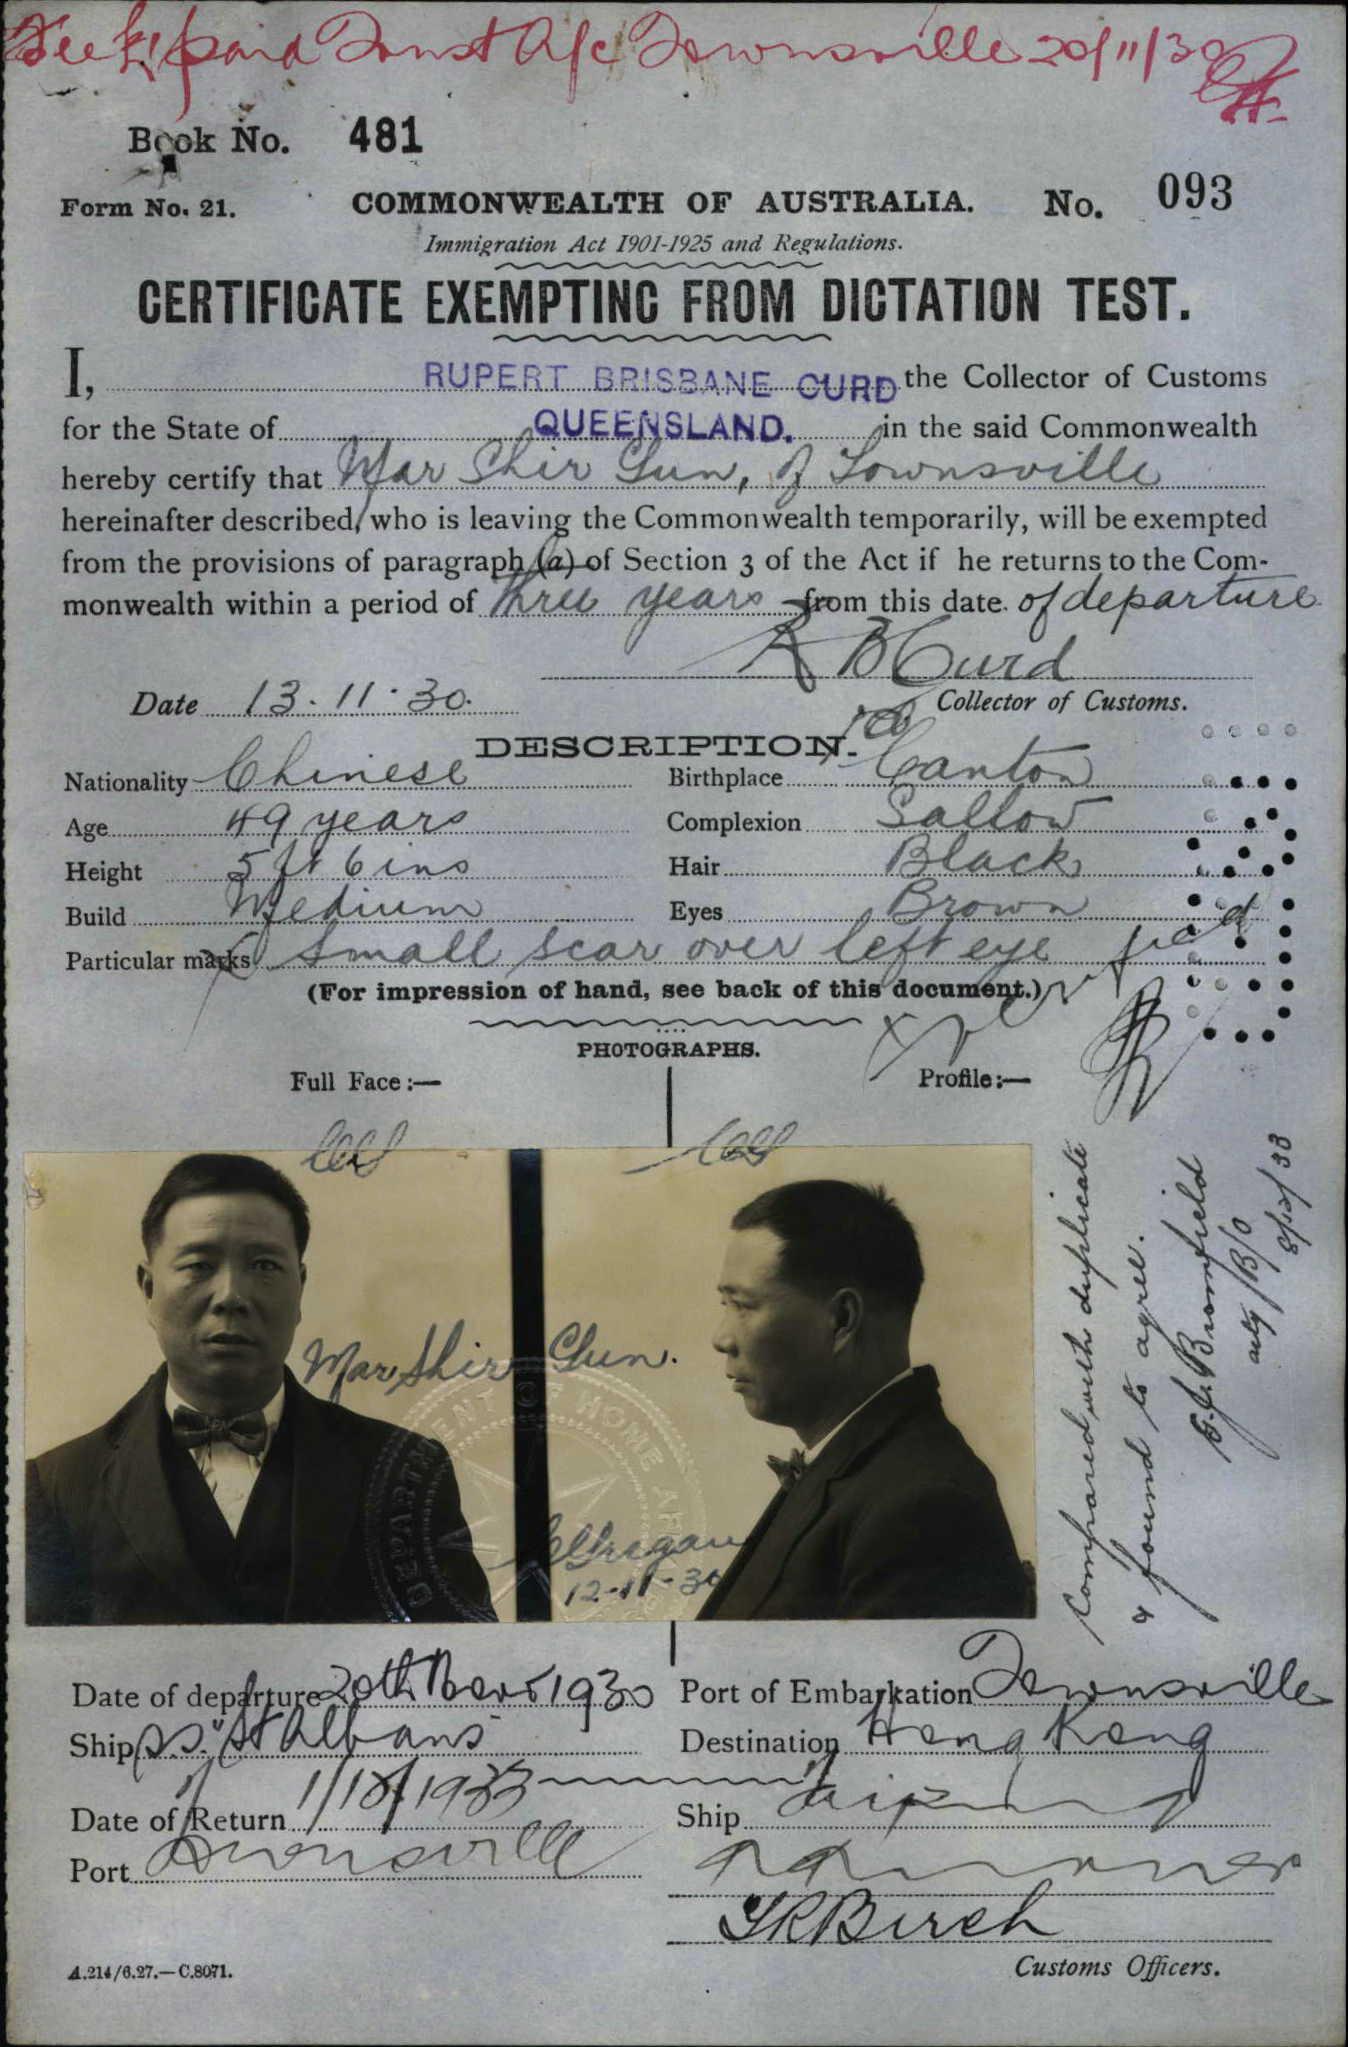 paid Trust A/c Townsville 20/11/30
Book No. 481
Form No. 21. COMMONWEALTH OF AUSTRALIA. No. 093
Immigration Act 1901-1925 and Regulations.
CERTIFICATE EXEMPTING FROM DICTATION TEST.
I, RUPERT BRISBANE CURD the Collector of Customs
for the State of QUEENSLAND. in the said Commonwealth
hereby certify that Mar Shir Gun, of Townsville
hereinafter described, who is leaving the Commonwealth temporarily, will be exempted
from the provisions of paragraph (a) of Section 3 of the Act if he returns to the Com-
monwealth within a period of three years from this date of departure
R B Curd
Date 13.11.30. Collector of Customs.
DESCRIPTION.
Nationality Chinese Birthplace Canton
Age 49 years Complexion Sallow
Height 5 ft 6 ins Hair Black
Build Medium Eyes Brown
Particular marks Small scar over left eye
(For impression of hand, see back of this document.)
PHOTOGRAPHS.
Full Face:— Profile:—
Mar Shir Gun.
DEPARTMENT OF HOME
12-11-30
Compared with duplicate
& found to agree.
Bromfield
8/12/33
Date of departure 20th Novr 1930 Port of Embarkation Townsville
Ship S.S. "St Albans" Destination Hong Kong
Date of Return 1/12/1933 Ship Taiping
Port Townsville
Birch
Customs Officers.
A.214/6.27.—C.8071.